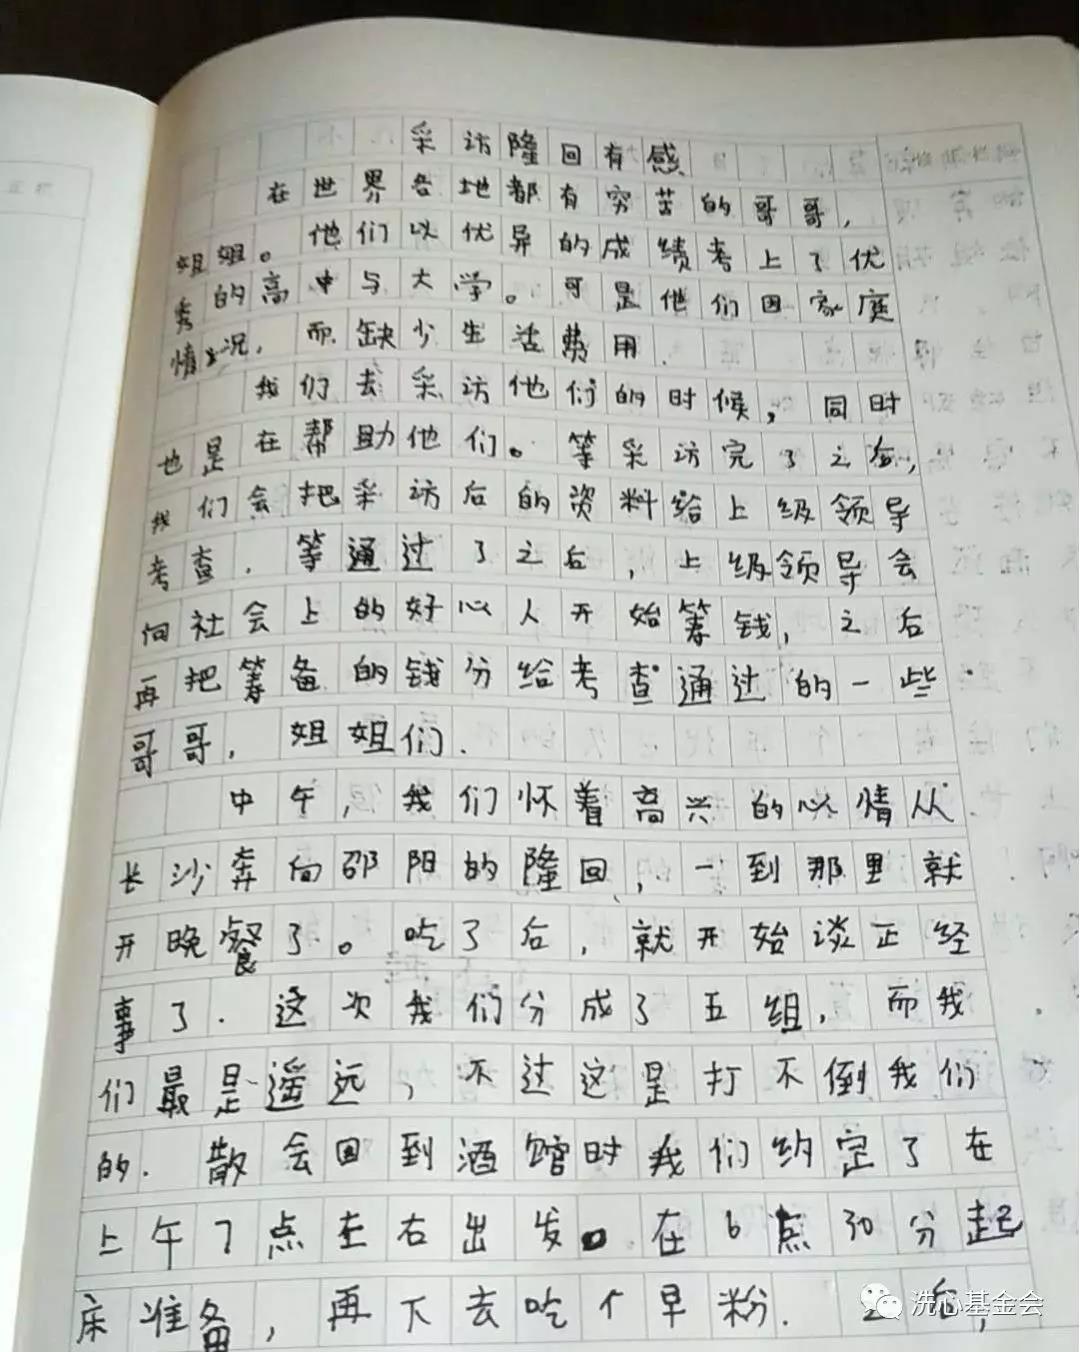 采访隆回有感
在世界各地都有穷苦的哥哥，
姐姐。他们以优异的成绩考上了优
秀的高中与大学。可是他们因家庭
情况，而缺少生活费用.
我们去采访他们的时候，同时
也是在帮助他们。等采访完了之后，
我们会把采访后的资料给上级领导
考查.等通过了之后，上级领导会
向社会上的好心人开始筹钱，之后
再把筹备的钱分给考查通过的一些
哥哥，姐姐们.
中午，我们怀着高兴的心情从
长沙奔向邵阳的隆回，一到那里就
开晚餐了。吃了后，就开始谈正经
事了.这次我们分成了五组，而我
们最是遥远，不过这是打不倒我们
的.散会回到酒馆时我们约定了在
上午7点左右出发。在6点30分起
床准备，再下去吃个早粉.之后，
洗心基金会